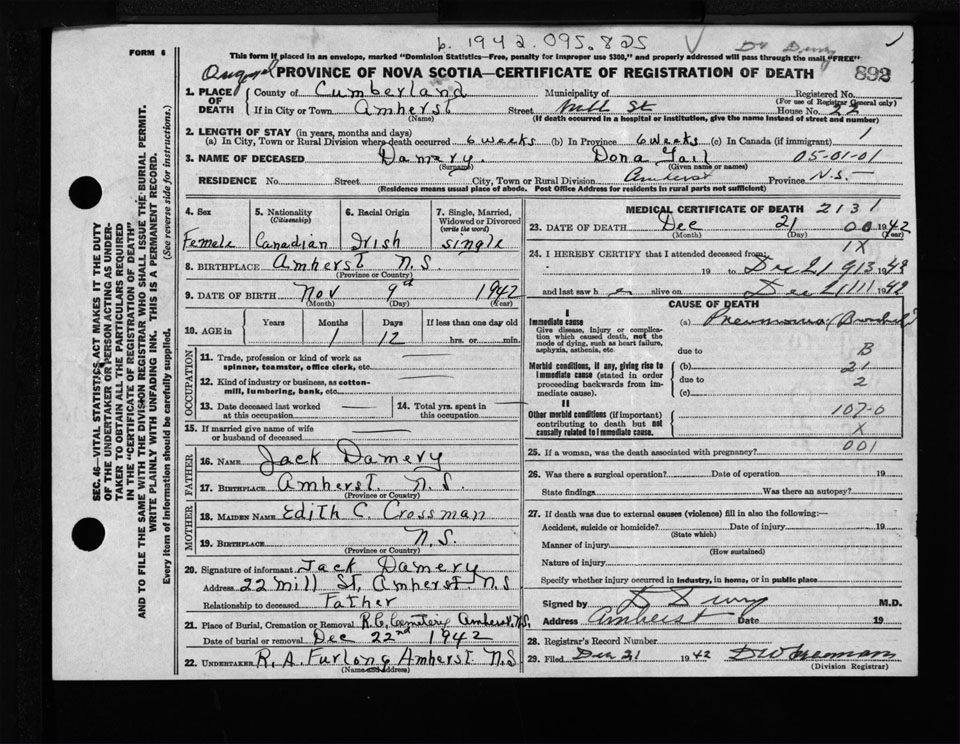 b. 1942.095.825
Dr Drury
FORM 6
This form if placed in an envelope, marked "Dominion Statistics—Free, penalty for improper use $300," and properly addressed will pass through the mail "FREE"
PROVINCE OF NOVA SCOTIA—CERTIFICATE OF REGISTRATION OF DEATH 892
1. PLACE OF DEATH
County of Cumberland Municipality of Registered No.
(For use of Registrar General only)
If in City or Town Amherst Street Mill St House No. 22
(Name) (If death occurred in a hospital or institution, give the name instead of street and number)
2. LENGTH OF STAY (in years, months and days)
(a) In City, Town or Rural Division where death occurred 6 weeks (b) In Province 6 weeks (c) In Canada (if immigrant)
3. NAME OF DECEASED Damery. Dona Gail 05-01-01
(Surname) (Given name or names)
RESIDENCE No. Street City, Town or Rural Division Amherst Province N.S.
(Residence means usual place of abode. Post Office Address for residents in rural parts not sufficient)
SEC. 46—VITAL STATISTICS ACT MAKES IT THE DUTY
OF THE UNDERTAKER OR PERSON ACTING AS UNDER-
TAKER TO OBTAIN ALL THE PARTICULARS REQUIRED
IN THE "CERTIFICATE OF REGISTRATION OF DEATH"
AND TO FILE THE SAME WITH THE DIVISION REGISTRAR WHO SHALL ISSUE THE BURIAL PERMIT.
WRITE PLAINLY WITH UNFADING INK. THIS IS A PERMANENT RECORD.
Every item of information should be carefully supplied. (See reverse side for instructions.)
4. Sex 5. Nationality (Citizenship) 6. Racial Origin 7. Single, Married, Widowed or Divorced (write the word)
Female Canadian Irish single
8. BIRTHPLACE Amherst N.S.
(Province or Country)
9. DATE OF BIRTH Nov 9th 1942
(Month) (Day) (Year)
10. AGE in Years Months Days If less than one day old
1 12 hrs. or min.
OCCUPATION
11. Trade, profession or kind of work as spinner, teamster, office clerk, etc.
12. Kind of industry or business, as cotton-mill, lumbering, bank, etc.
13. Date deceased last worked at this occupation 14. Total yrs. spent in this occupation
15. If married give name of wife or husband of deceased
FATHER
16. NAME Jack Damery
17. BIRTHPLACE Amherst. N.S.
(Province or Country)
MOTHER
18. MAIDEN NAME Edith C. Crossman
19. BIRTHPLACE N.S.
(Province or Country)
20. Signature of informant Jack Damery
Address 22 Mill St, Amherst N.S
Relationship to deceased Father
21. Place of Burial, Cremation or Removal R.C. Cemetery Amherst, N.S.
Date of burial or removal Dec 22nd 1942
22. UNDERTAKER R. A. Furlong Amherst N.S
(Name and address)
MEDICAL CERTIFICATE OF DEATH 2131
23. DATE OF DEATH Dec 21 00 1942
(Month) (Day) (Year)
24. I HEREBY CERTIFY that I attended deceased from: 1X
19 to Dec 21 913 194
and last saw h e alive on Dec 1942
CAUSE OF DEATH
I
Immediate cause
Give disease, injury or complication which caused death, not the mode of dying, such as heart failure, asphyxia, asthenia, etc.
(a) Pneumonia (Bronchial)
due to B
Morbid conditions, if any, giving rise to immediate cause (stated in order proceeding backwards from immediate cause).
(b) 21
due to 2
(c)
II
Other morbid conditions (if important) contributing to death but not causally related to immediate cause.
107-0
X
25. If a woman, was the death associated with pregnancy? 001
26. Was there a surgical operation? Date of operation 19
State findings Was there an autopsy?
27. If death was due to external causes (violence) fill in also the following:—
Accident, suicide or homicide? Date of injury 19
(State which)
Manner of injury
(How sustained)
Nature of injury
Specify whether injury occurred in industry, in home, or in public place
Signed by D Drury M.D.
Address Amherst Date 19
28. Registrar's Record Number
29. Filed Dec 21 1942
(Division Registrar)